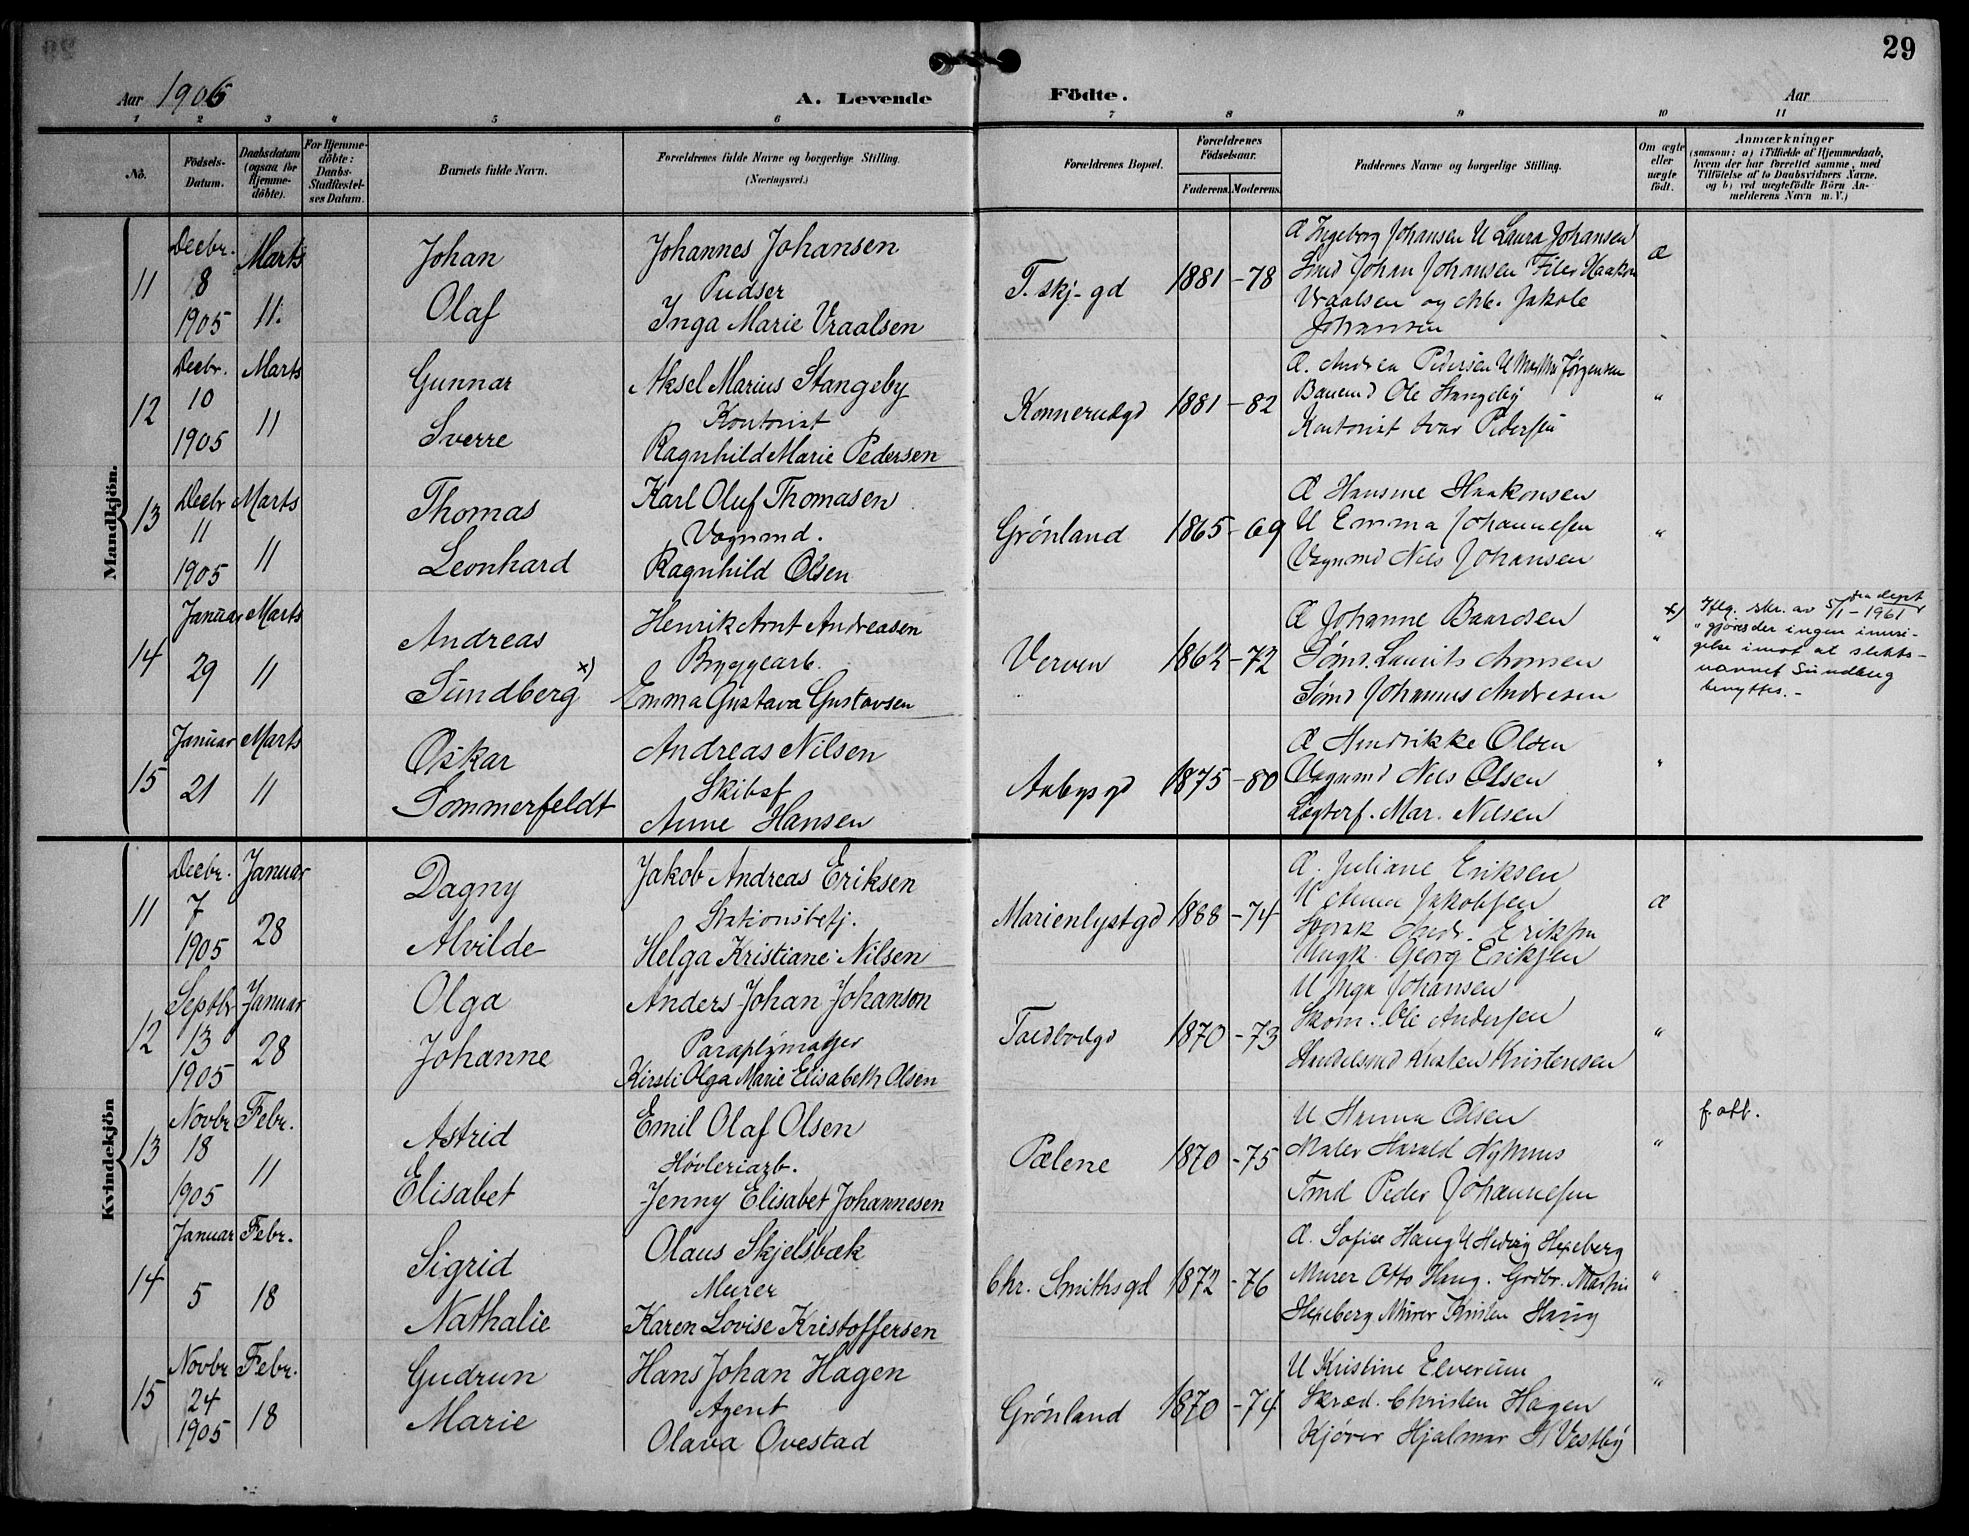 29
Aar 1906
A. Levende Födte.
Aar
1 2 3 4 5 6 7 8 9 10 11
No.
Födsels-Datum.
Daabsdatum (ogsaa for Hjemme-döbte).
For Hjemme-döbte: Daabs-Stadfæstel-ses Datum.
Barnets fulde Navn.
Forældrenes fulde Navne og borgerlige Stilling.
(Næringsvei.)
Forældrenes Bopæl.
Forældrenes Födselsaar.
Faderens. Moderens.
Faddernes Navne og borgerlige Stilling.
Om ægte eller uægte födt.
Anmærkninger
(saasom: a) i Tilfælde af Hjemmedaab,
hvem der har forrettet samme, med
Tilföielse af to Daabsvidners Navne.
og b) ved uægtefödte Börn An-
melderens Navn m. V.)
Mandkjön.
11
Decbr. 8 1905
Marts 11.
Johan
Olaf
Johannes Johansen
Pudser
Inga Marie Vraalsen
T. skj-gd
1881 - 78
Æ Ingeborg Johansen U Laura Johansen
Smed Johan Johansen Filer Haakon
Vraalsen og Jakob
Johansen
Æ
12
Decbr. 10 1905
Marts 11
Gunnar
Sverre
Aksel Marius Stangeby
Kontorist
Ragnhild Marie Pedersen
Konnerudgd
1881 - 82
Æ. Andrea Pedersen U Martha Jørgensen
Banemd Ole Stangeby
Kontorist Ivar Pedersen
"
13
Decbr 11 1905
Marts 11
Thomas
Leonhard
Karl Oluf Thomasen
Vognmd.
Ragnhild Olsen
Grønland
1865 - 69
Æ Hansine Haakonsen
U Emma Johannesen
Vognmd Nils Johansen
"
14
Januar 29
Marts 11
Andreas
Sundberg x)
Henrik Arnt Andreasen
Bryggearb.
Emma Gustava Gustavsen
Verven
1862 - 72
Æ Johanne Baardsen
Sømd. Laurits Aronsen
Sømd Johannes Andresen
x) "
Iflg. skr. av 5/1 - 1961 dept
gjøres der ingen inven-
gelse imot at slekts-
navnet Sundberg
benyttes. -
15
Januar 21
Marts 11
Oskar
Sommerfeldt
Andreas Nilsen
Skibsf
Anne Hansen
Aabysgd
1875 - 80
Æ Hendrikke Olsen
Vognmd Nils Olsen
Løgtorf. Mar. Nilsen
"
Kvindekjön
11
Decbr. 7 1905
Januar 28
Dagny
Alvilde
Jakob Andreas Eriksen
Stationsbetj.
Helga Kristiane Nilsen
Marienlystgd
1868 - 74
Æ. Juliane Eriksen
U Anna Jakobsen
Andr. Eriksen
Ungk. Georg Eriksen
Æ
12
Septbr 13 1905
Januar 28
Olga
Johanne
Anders Johan Johanson
Paraplymager
Kirsti Olga Marie Elisabeth Olsen
Toldbodgd
1870 - 73
U Inga Johansen
Skom. Ole Andersen
Handelsmd Kristen Kristensen
"
13
Novbr 18 1905
Febr. 11
Astrid
Elisabet
Emil Olaf Olsen
Høvleriarb.
Jenny Elisabet Johannesen
Pælene
1870 - 75
U Hanna Olsen
Maler Harald Nyhuus
Tmd Peder Johannesen
"
f. att.
14
Januar 5
Febr. 18
Sigrid
Nathalie
Olaus Skjelsbæk
Murer
Karen Lovise Kristoffersen
Chr. Smithsgd
1872 - 76
Æ. Sofie Haug U Hedvig Hexeberg
Murer Otto Haug. Grdbr. Martin
Hexeberg Murer Kristen Haug
"
15
Novbr 24 1905
Febr. 18
Gudrun
Marie
Hans Johan Hagen
Agent
Olava Ovestad
Grønland
1870 - 74
U Kristine Elverum
Skræd. Christen Hagen
Kjører Hjalmar H Vestby
"